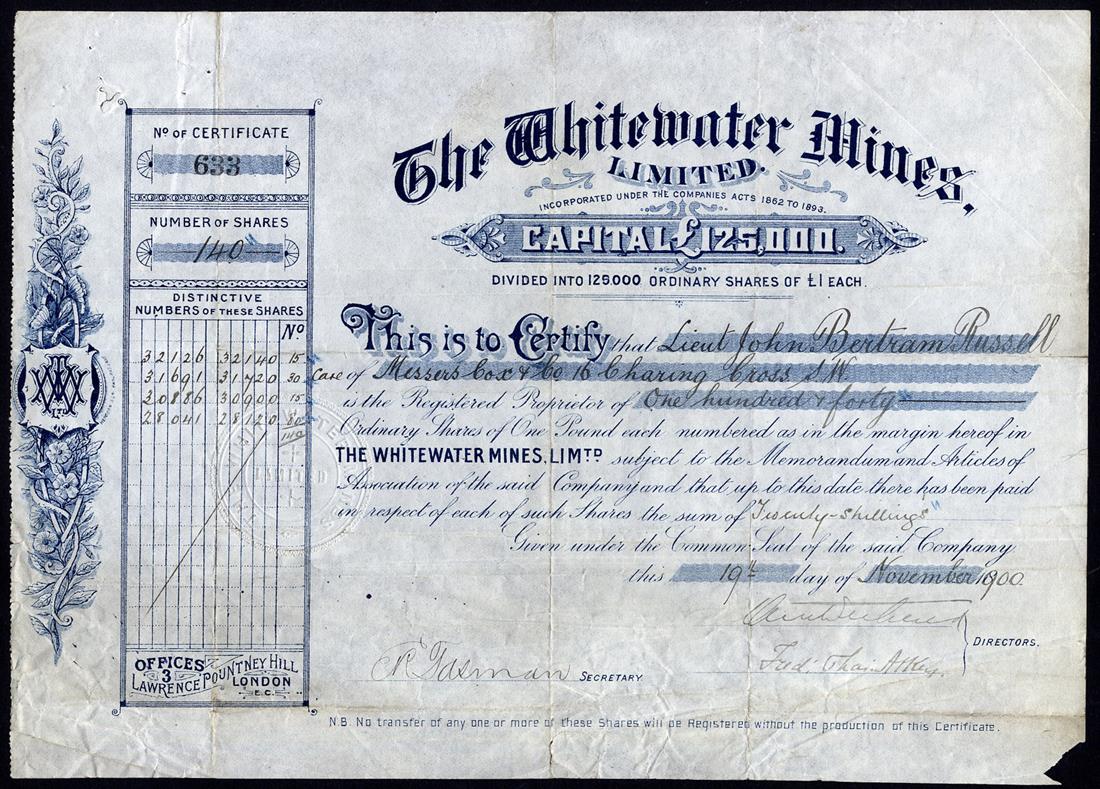 Nº OF CERTIFICATE
633
NUMBER OF SHARES
140
DISTINCTIVE
NUMBERS OF THESE SHARES
Nº
32126 32140 15
31691 31720 30
30886 30900 15
28041 28120 80
140
OFFICES
3
LAWRENCE POUNTNEY HILL
LONDON
E.C.
The Whitewater Mines,
LIMITED.
INCORPORATED UNDER THE COMPANIES ACTS 1862 TO 1893.
CAPITAL £125,000.
DIVIDED INTO 125.000 ORDINARY SHARES OF £1 EACH.
This is to Certify that Lieut John Bertram Russell
Care of Messers Cox & Co 16 Charing Cross S.W
is the Registered Proprietor of One hundred & forty
Ordinary Shares of One Pound each numbered as in the margin hereof in
THE WHITEWATER MINES, LIMTD subject to the Memorandum and Articles of
Association of the said Company and that up to this date there has been paid
in respect of each of such Shares the sum of Twenty-shillings
Given under the Common Seal of the said Company
this 19th day of November 1900
DIRECTORS.
SECRETARY
N.B. No transfer of any one or more of these Shares will be Registered without the production of this Certificate.